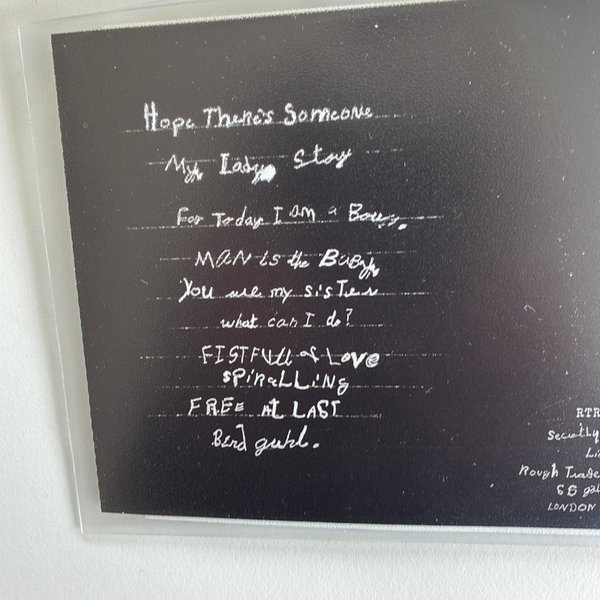 Hope There's Someone
My Lady Story
For Today I am a Boy.
MAN is the BaBy
You are my sister
what can I do?
FISTFull of Love
SPiRaLLiNg
FREE AT LAST
Bird guhl.
RTR
Secretly
Rough Trade
66 gol
LONDON